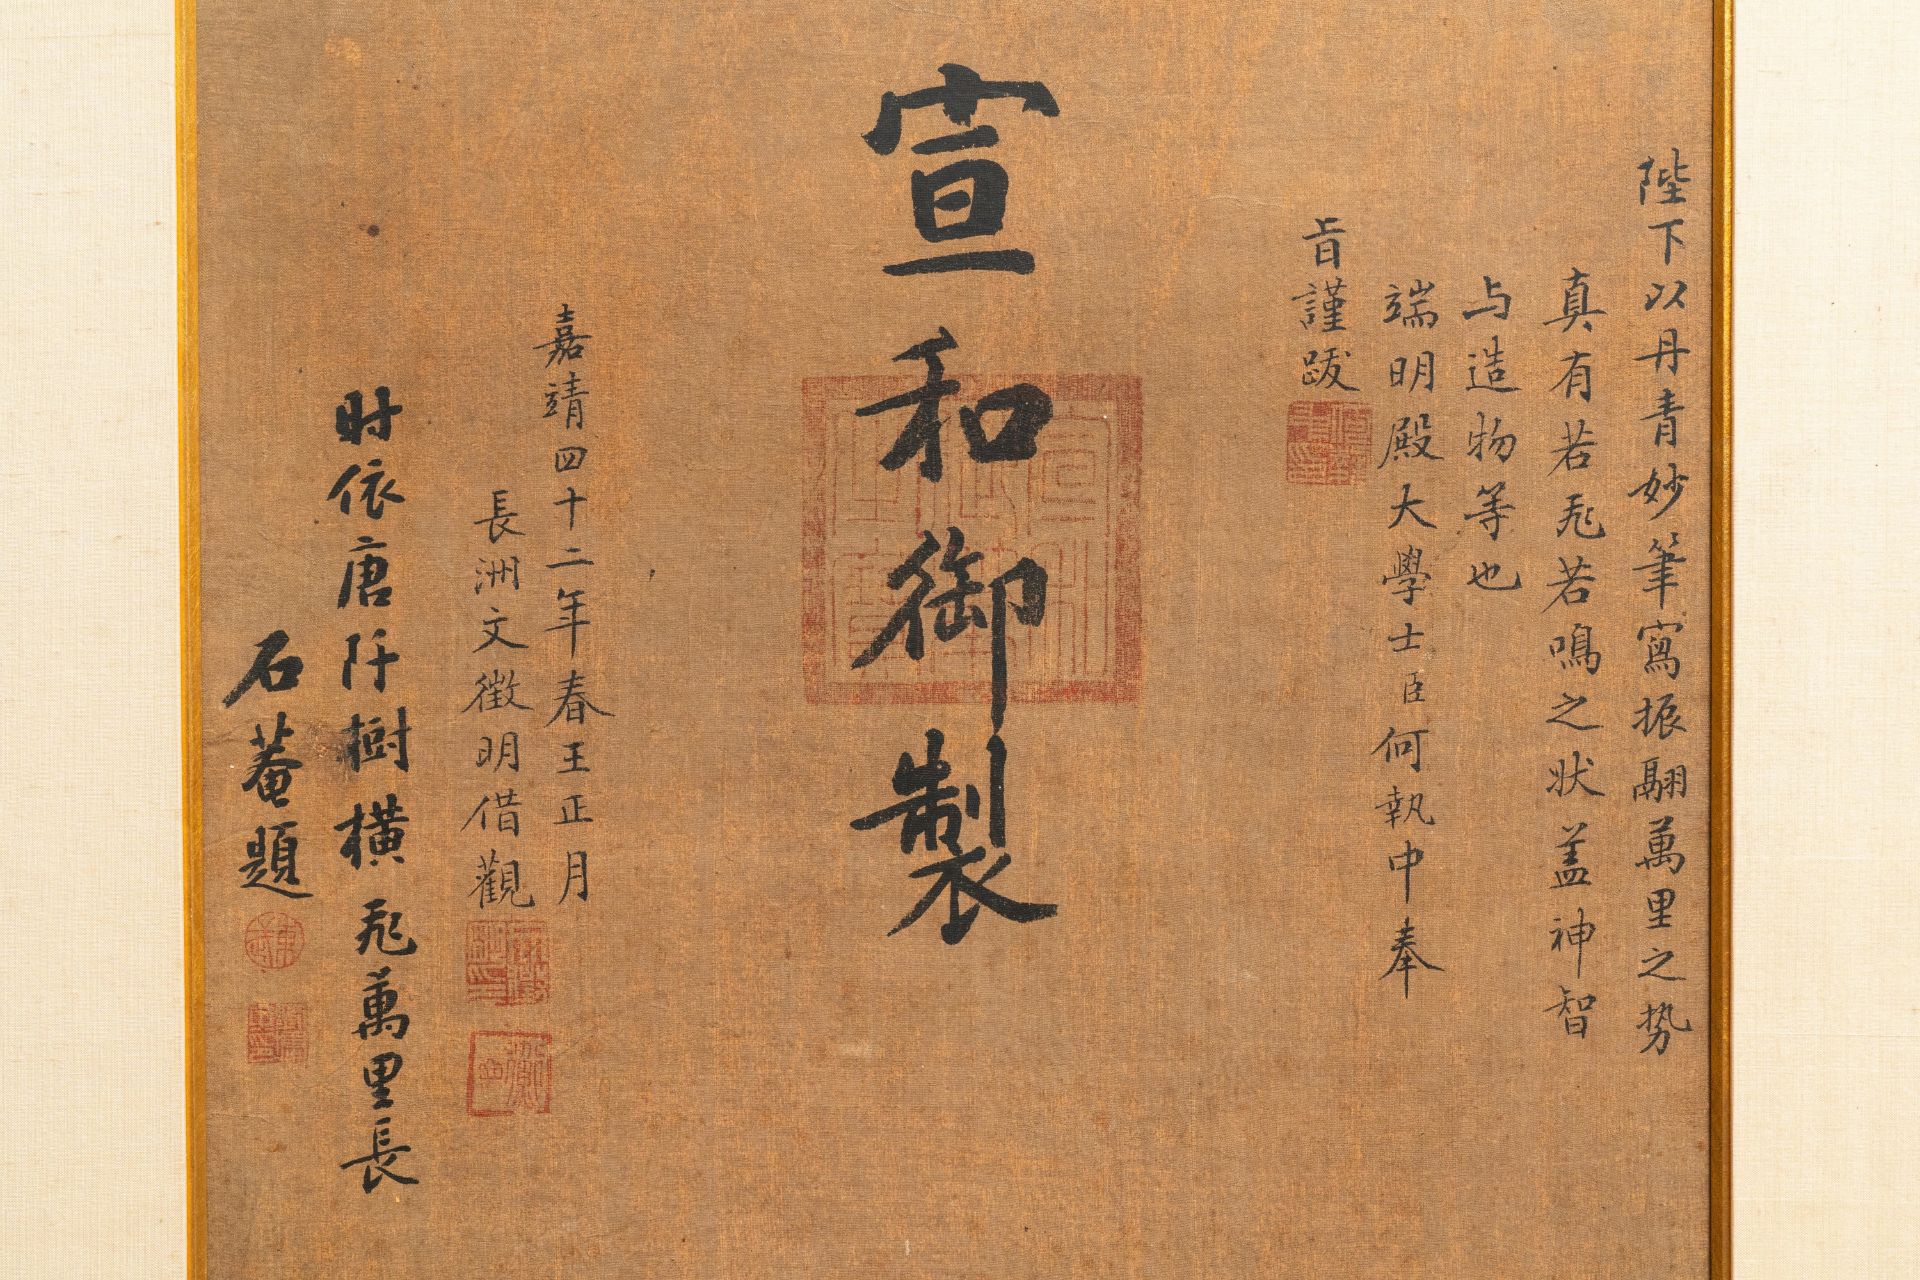 陛下以丹青妙筆寫振翮萬里之势
真有若飛若鳴之状盖神智
与造物等也
端明殿大學士臣何執中奉
旨謹跋
宣和御製
嘉靖四十二年春王正月
長洲文徵明借觀
时依唐阡樹橫飛萬里長
石菴題